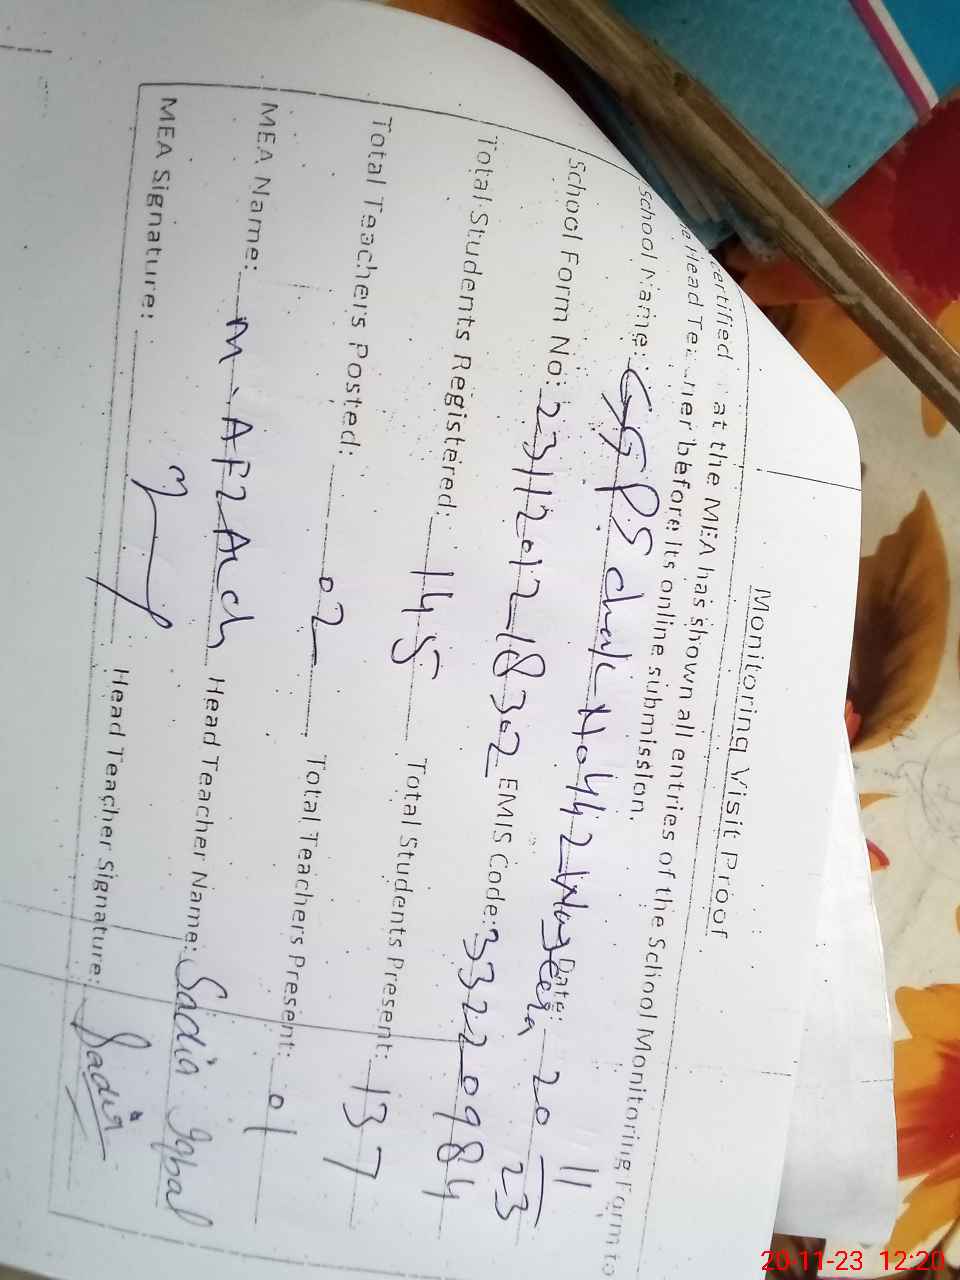 Monitoring Visit Proof
certified at the MEA has shown all entries of the School Monitoring Form to
Head Teacher before its online submission.
School Name: GGPS chak No 442 Wazeera Date: 20 11 23
School Form No: 23112012181302 EMIS Code: 33220984
Total Students Registered: 145 Total Students Present: 137
Total Teachers Posted: 02 Total Teachers Present: 01
MEA Name: M. AFZAL Head Teacher Name: Sadia Iqbal
MEA Signature: Head Teacher Signature: Sadia
20-11-23 12:20